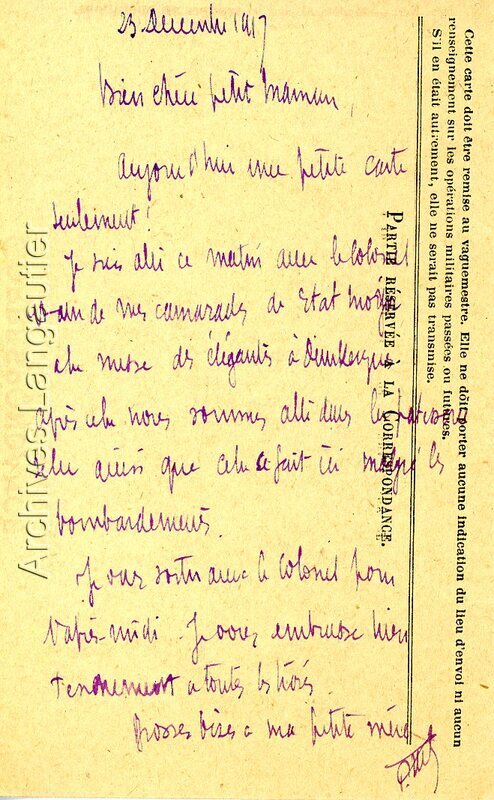 23 Decembre 1917
Bien chère petit Maman,
aujourd'hui une petite carte
seulement!
Je suis allé ce matin avec le Colonel
de mes camarades de Etat Major
a la messe des élégantes à Dunkerque
après cela nous sommes allé dans les
ainsi que cela se fait ici malgré les
bombardements.
Je vais sortir avec le Colonel pour
l'après-midi. Je vous embrasse bien
tendrement a toutes les trois.
Grosses bises a ma petite mère
PARTIE RÉSERVÉE À LA CORRESPONDANCE.
Cette carte doit être remise au vaguemestre. Elle ne doit porter aucune indication du lieu d'envoi ni aucun
renseignement sur les opérations militaires passées ou futures.
S'il en était autrement, elle ne serait pas transmise.
Archives-Langautier